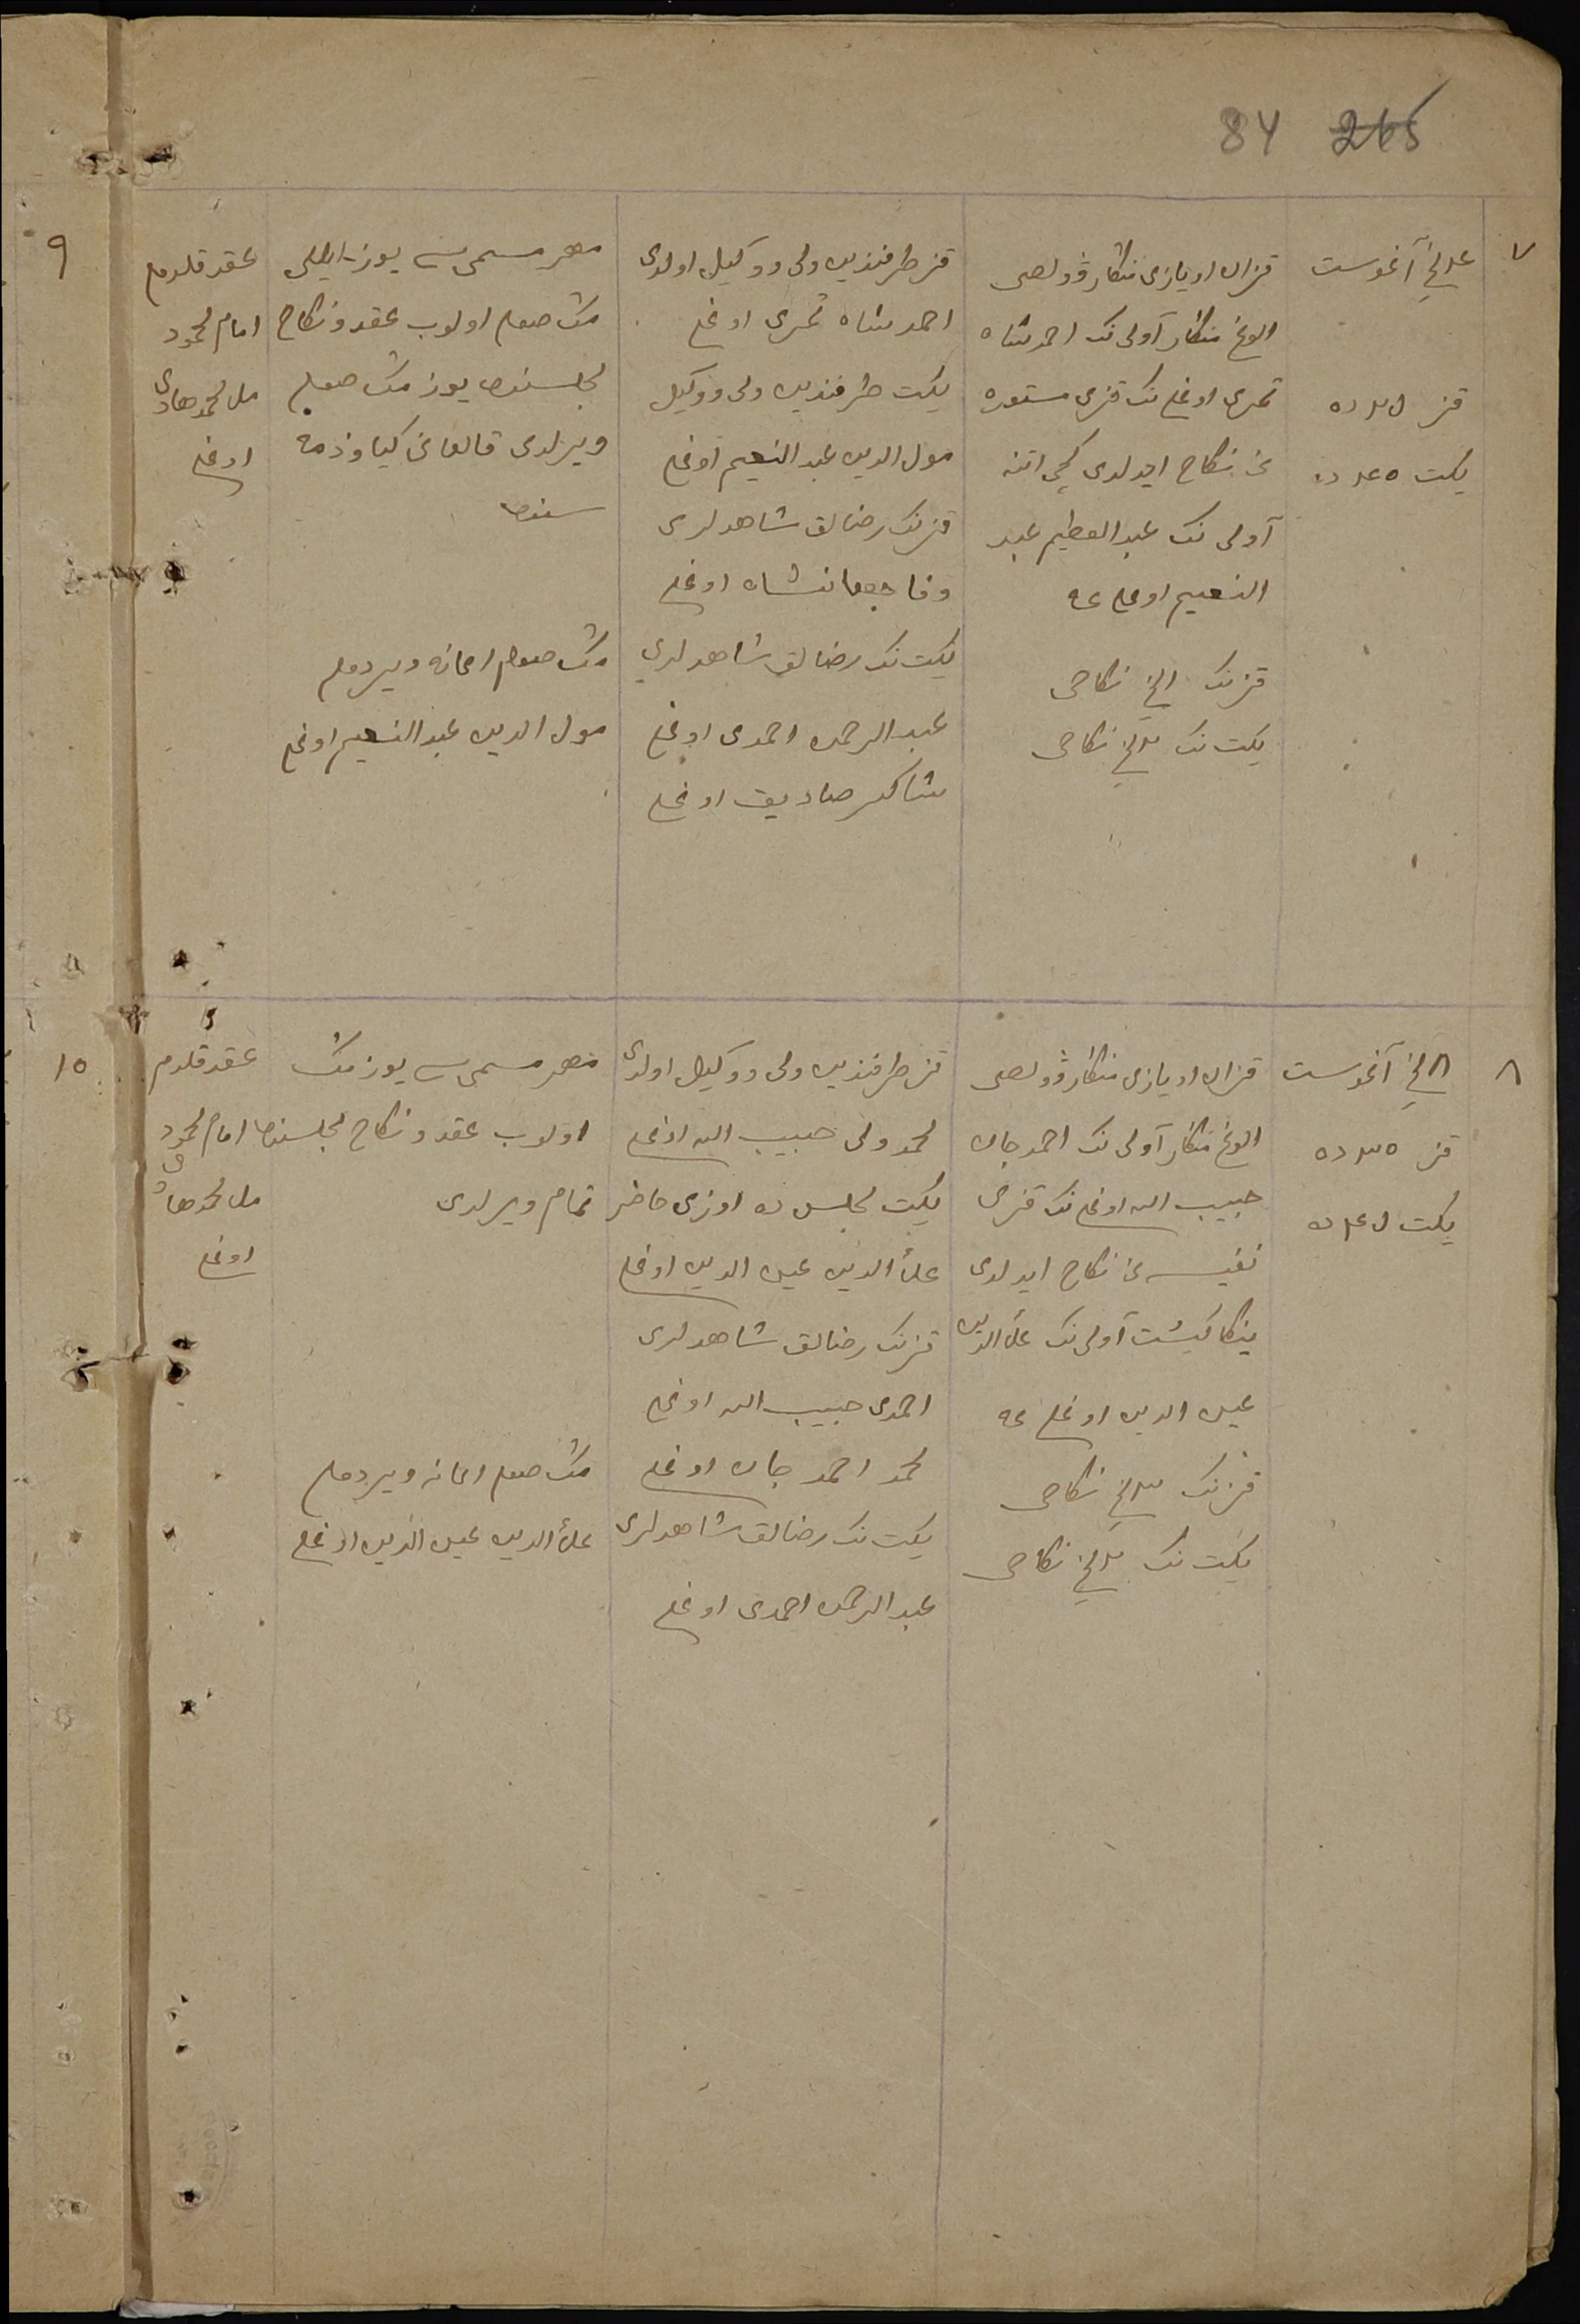 84 265
٧
٤ نچی آغوست
قز ٢٥ ده
یکت ٤٥ ده
قزان اویازی منکار ڤولصی
الوغ منکار آولی نک احمدشاه
تمری اوغلی نک قزی مستوره
نی نکاح ایدلدی کچی اتنه
آولی نک عبد العظیم عبد
النعیم اوغلی غه
قزنک انچی نکاحی
یکت نک ٢ نچی نکاحی
قز طرفندین ولی و وکیل اولدی
احمدشاه تمری اوغلی
یکت طرفندین ولی و وکیل
عبد النعیم اوغلی
قزنک رضالق شاهدلری
وفا جهانشاه اوغلی
یکت نک رضالق شاهدلری
عبد الرحمن احمدی اوغلی
شاکر صادیق اوغلی
مهر مسمی سی یوز ایللی
منک صوم اولوب عقد و نکاح
مجلسنده یوز منک صوم
ویرلدی قالغانی کیاو ذمه
سنده
منک صوم اعانه ویردم
عبد النعیم اوغلی
عقد قلدم
امام محمود
ملا محمدهادی
اوغلی
9
٨
٨ نچی آغوست
قز ٢٥ ده
یکت ٤٥ ده
قزان اویازی منکار ڤولصی
الوغ منکار آولی نک احمدجان
حبیب الله اوغلی نک قزی
نفیسه نی نکاح ایدلدی
آولی نک علاء الدین
عین الدین اوغلی غه
قزنک ٢ نچی نکاحی
یکت نک ٢ نچی نکاحی
قز طرفندین ولی و وکیل اولدی
محمد ولی حبیب الله اوغلی
یکت مجلس ده اوزی حاضر
علاء الدین عین الدین اوغلی
قزنک رضالق شاهدلری
احمدی حبیب الله اوغلی
محمد احمد جان اوغلی
یکت نک رضالق شاهدلری
عبد الرحمن احمدی اوغلی
مهر مسمی سی یوز منک
اولوب عقد و نکاح مجلسنده
تمام ویرلدی
منک صوم اعانه ویردم
علاء الدین عین الدین اوغلی
عقد قلدم
امام محمود
ملا محمدهادی
اوغلی
10